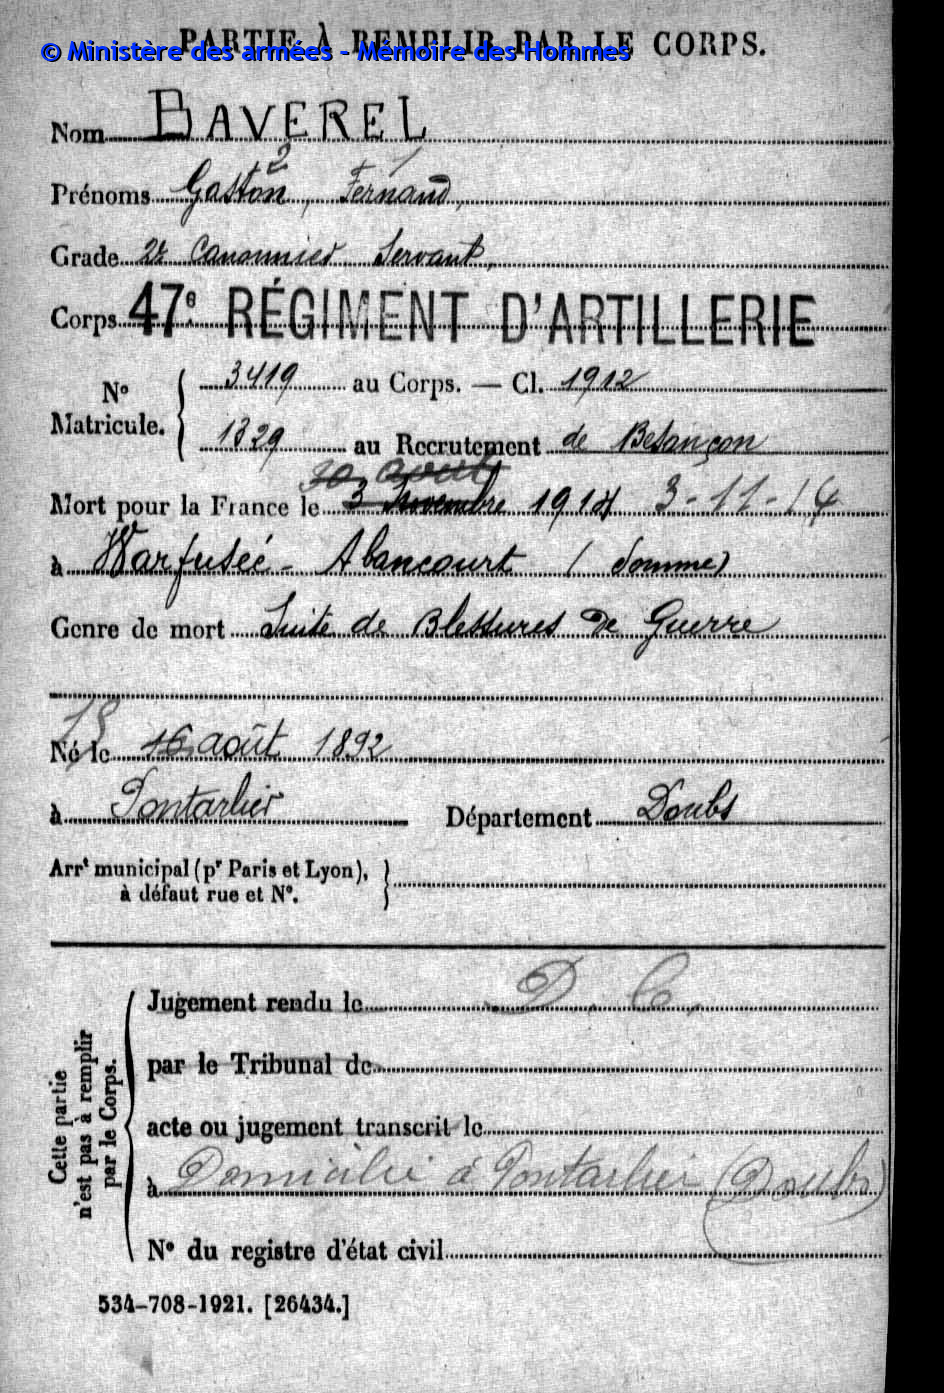 PARTIE À REMPLIR PAR LE CORPS.
© Ministère des armées - Mémoire des Hommes
Nom BAVEREL
2 1
Prénoms Gaston, Fernand,
Grade 2e Canonnier Servant,
Corps 47e RÉGIMENT D'ARTILLERIE
No Matricule. 3419 au Corps. — Cl. 1912
1329 au Recrutement de Besançon
30 août
Mort pour la France le 3 Novembre 1914 3-11-14
à Warfusée - Abancourt (Somme)
Genre de mort Suite de Blessures de Guerre
Né le 16 août 1892
à Pontarlier Département Doubs
Arrt municipal (pr Paris et Lyon),
à défaut rue et No.
Cette partie n'est pas à remplir par le Corps.
Jugement rendu le D. C.
par le Tribunal de
acte ou jugement transcrit le
à Domicilié à Pontarlier (Doubs)
No du registre d'état civil
534-708-1921. [26434.]